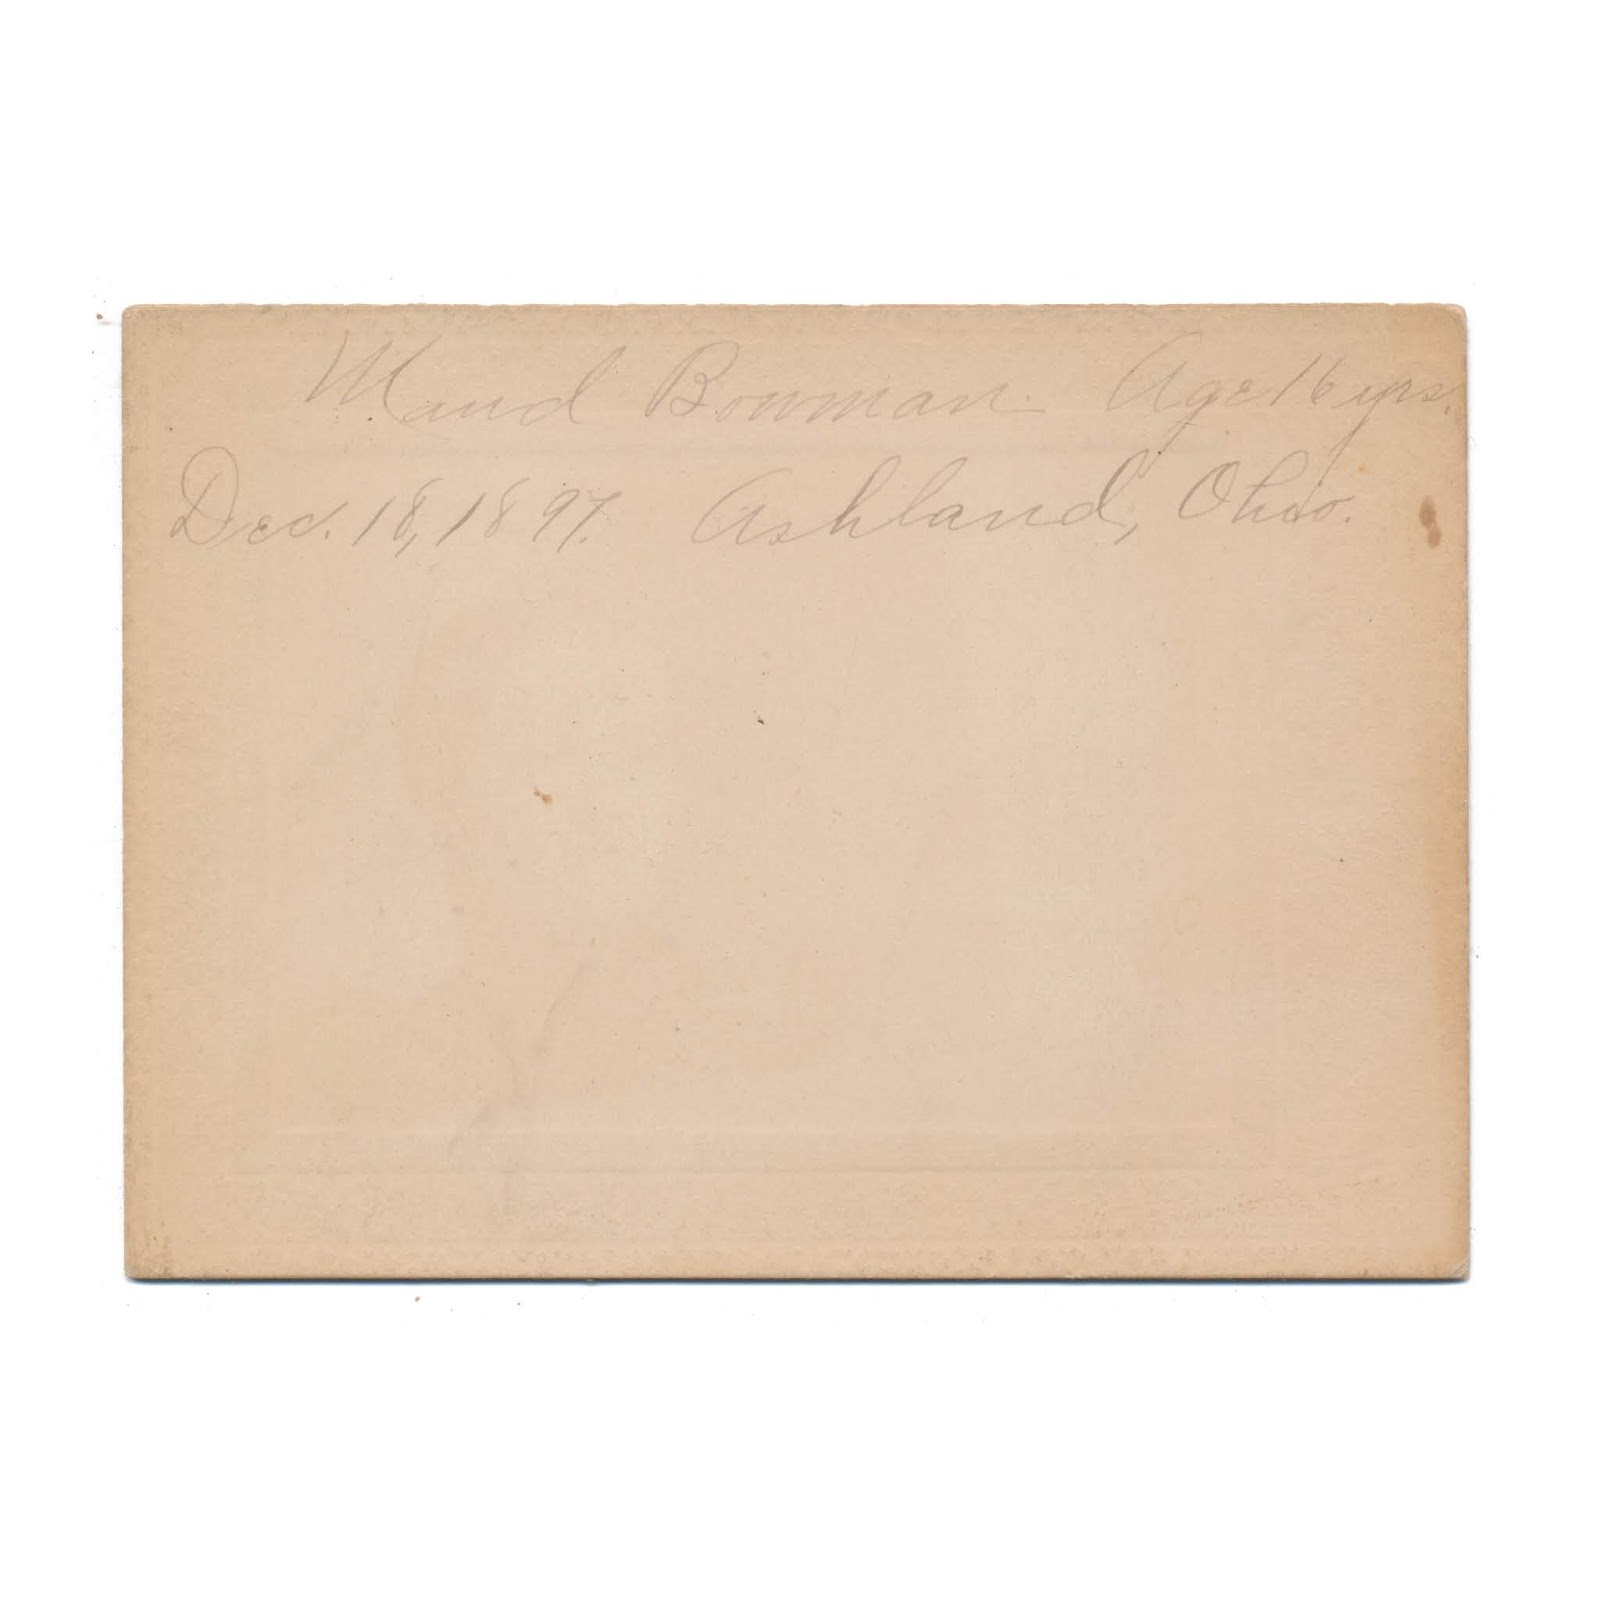 Maud Bowman. Age 16 yrs.
Dec. 18, 1897. Ashland, Ohio.